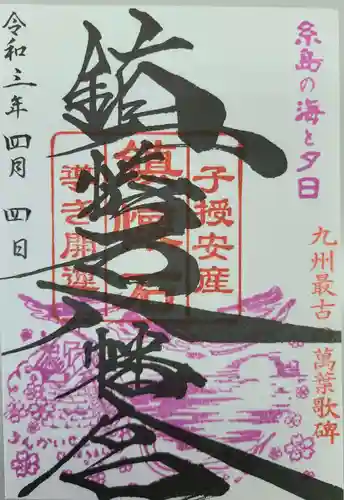 糸島の海と夕日
九州最古の萬葉歌碑
子授安産
鎮懐石八幡宮
導き開運
令和三年四月四日